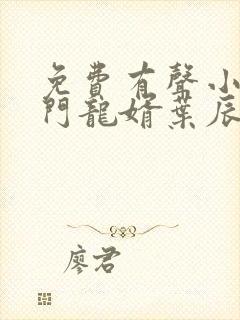 免費有聲小
門龍婿葉辰
廖君